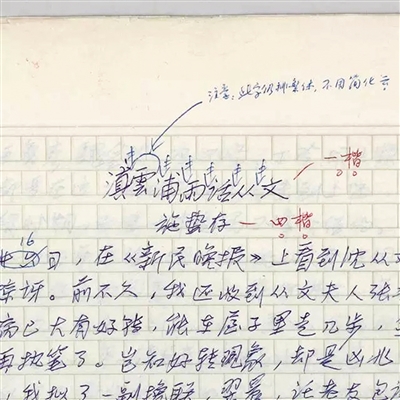 注意：此字仍排繁体，不用简化字
滇雲浦雨话从文 一楷
施蛰存 四楷
16日，在《新民晚报》上看到沈从文
惊讶。前不久，我还收到从文夫人张
病已大有好转，能在屋子里走几步，
再执笔了。岂知好转现象，却是凶兆
，我拟了一副挽联，翌晨，托老友包